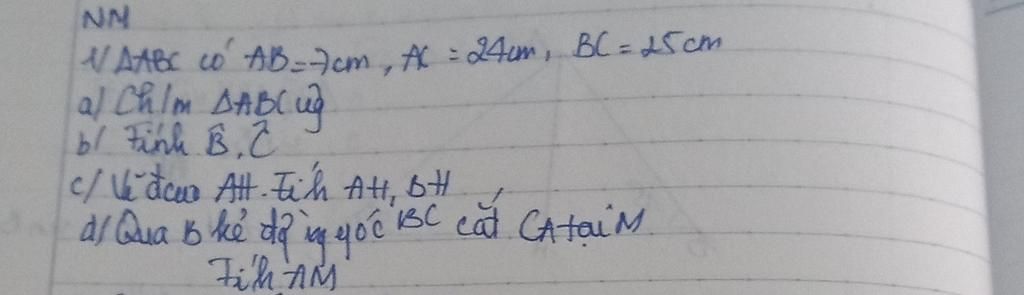 NM
1/ ΔABC có AB = 7cm, AC = 24cm, BC = 25cm
a/ Ch/m ΔABC vg
b/ Tính B̂, Ĉ
c/ Vẽ đcao AH. Tính AH, BH
d/ Qua B kẻ đg vg góc BC cắt CA tại M
Tính AM